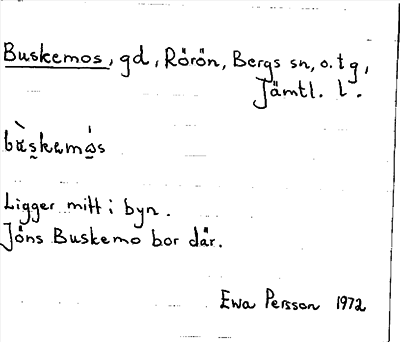 Buskemos, gd, Rörön, Bergs sn, o. t g,
Jämtl. l.
bùskemós
Ligger mitt i byn.
Jöns Buskemo bor där.
Ewa Persson 1972